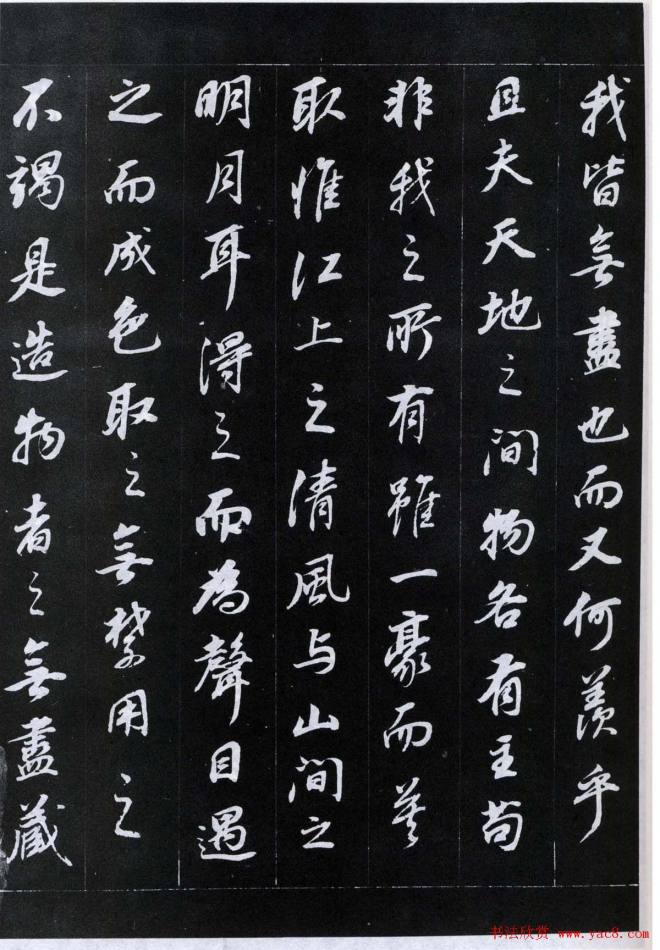 我皆無盡也而又何羨乎
且夫天地之間物各有主苟
非我之所有雖一豪而莫
取惟江上之清風与山間之
明月耳得之而為聲目遇
之而成色取之無禁用之
不竭是造物者之無盡藏
书法欣赏 www.yac8.com